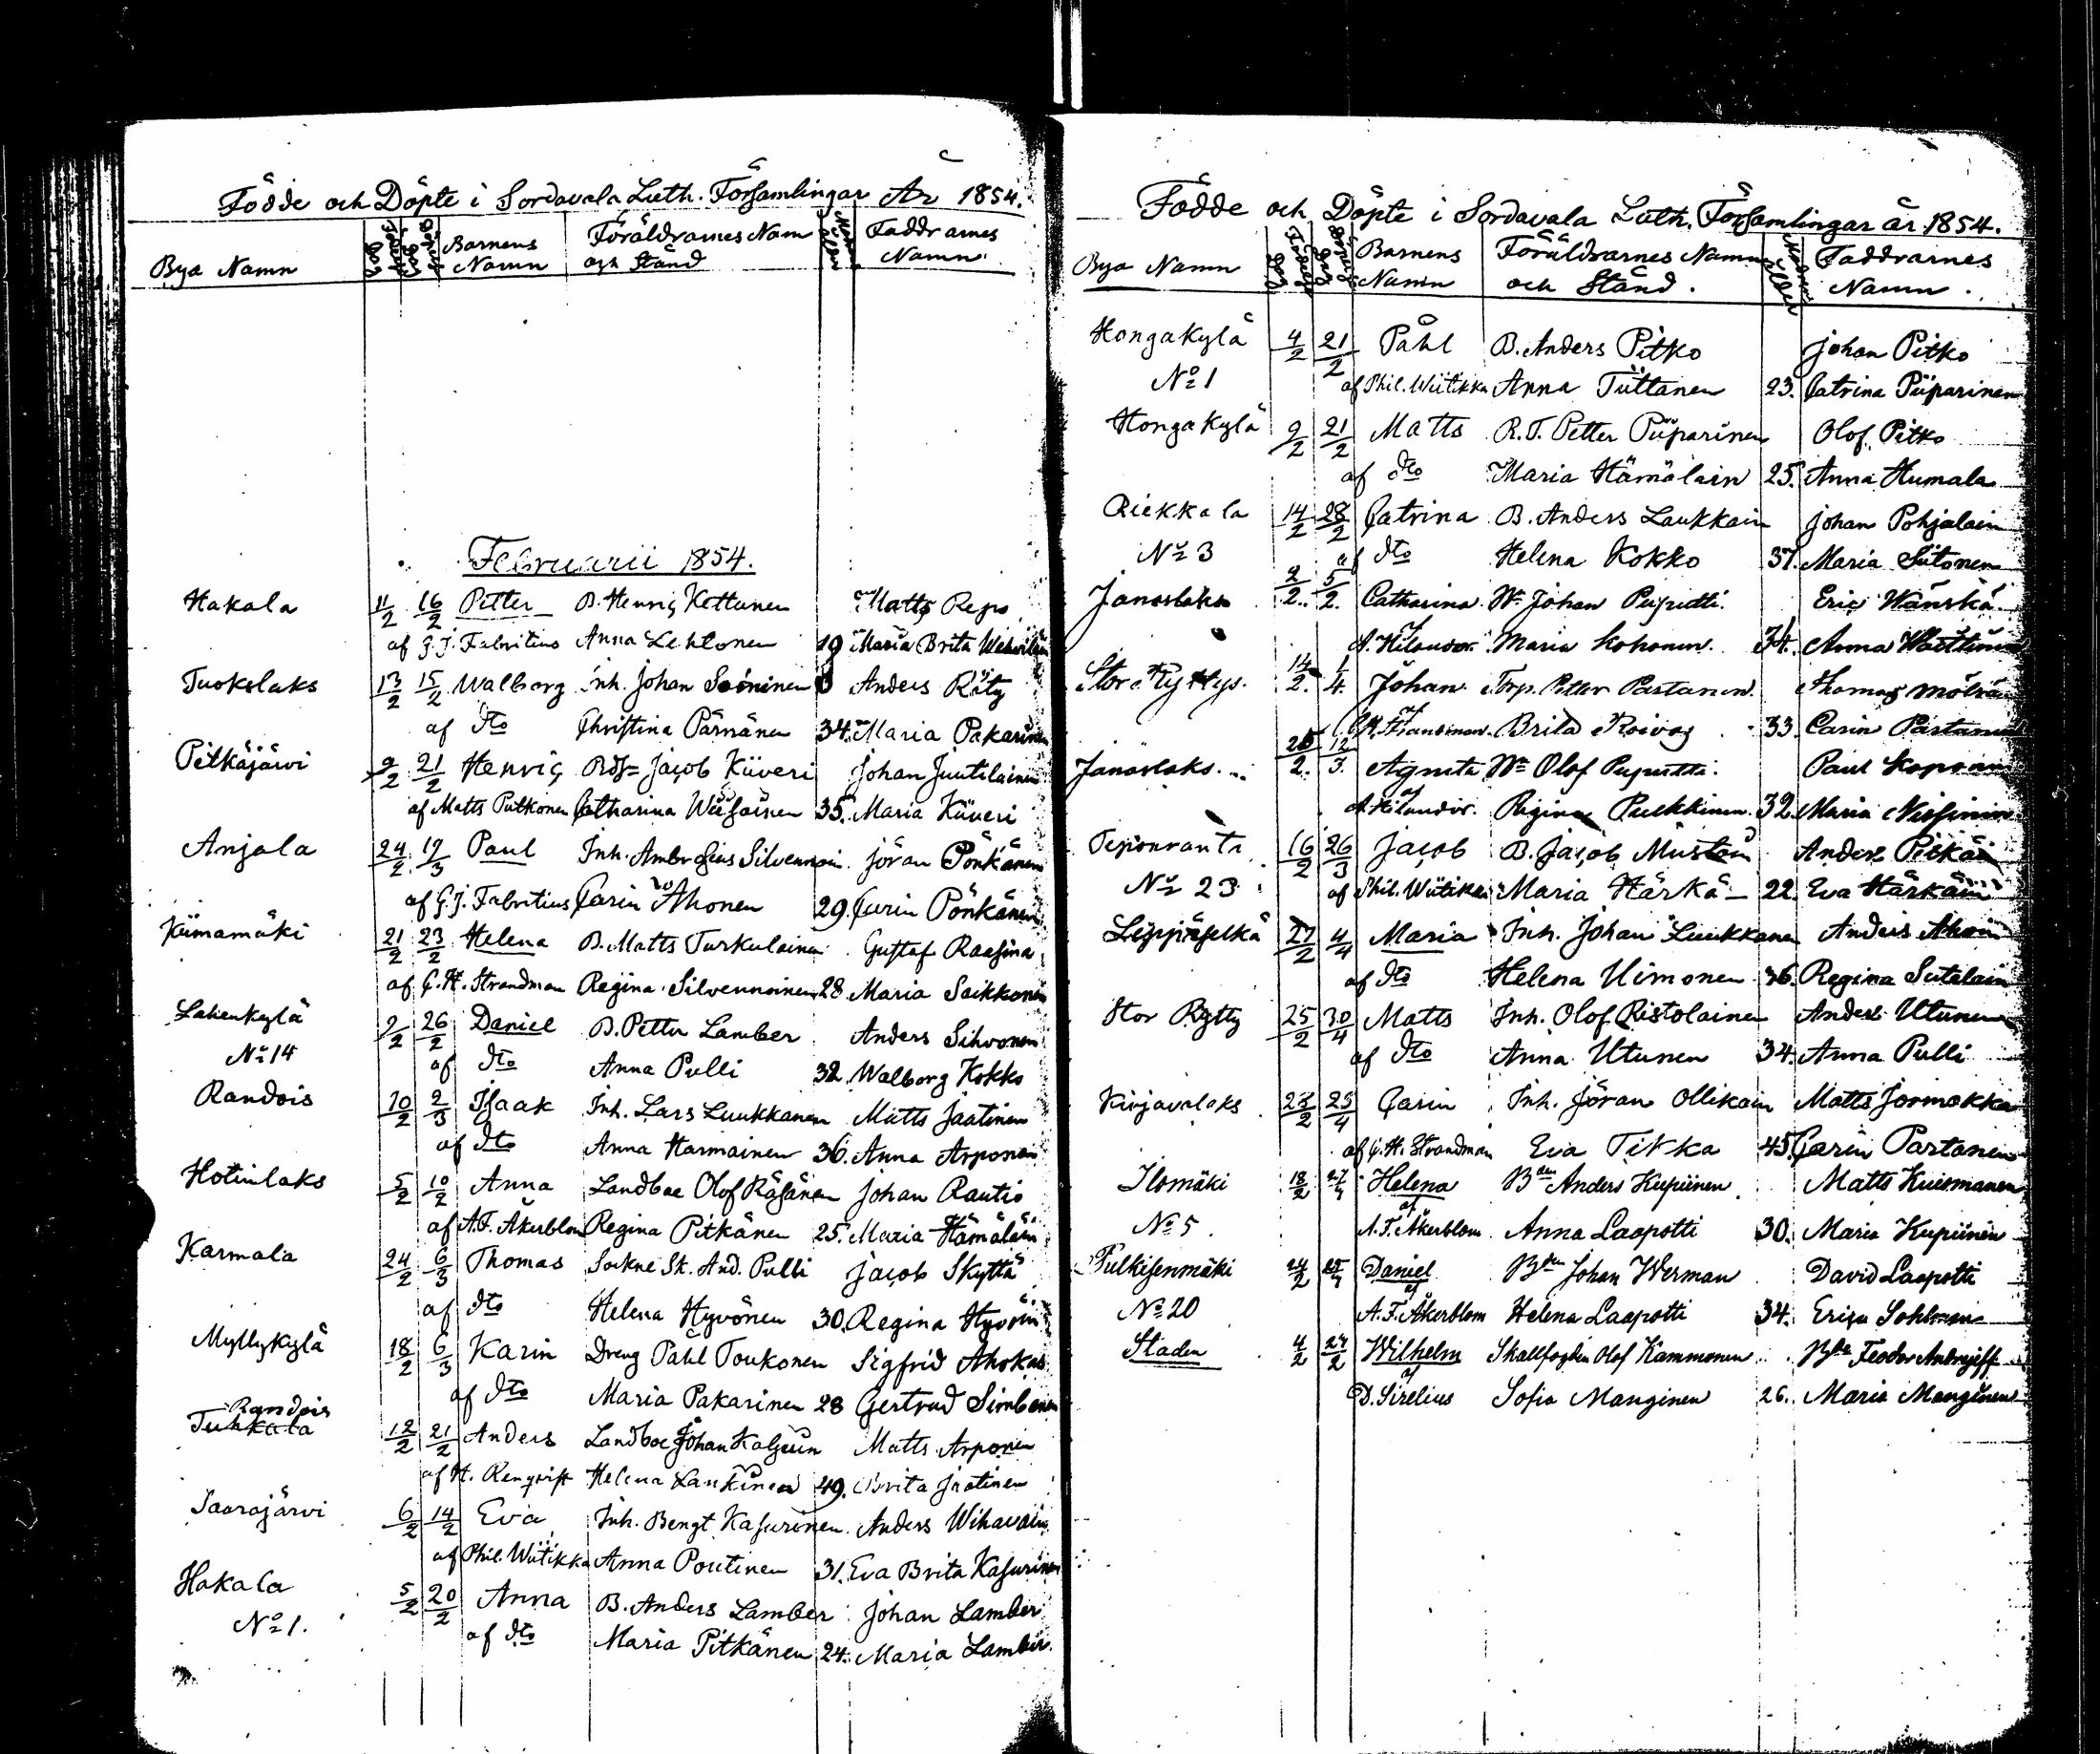 Födde och Döpte i Sordavala Luth. Församlingar År 1854.
Bya Namn Födelse Dag Döpelse Dag Barnens Namn Föräldrarnes Namn och Stånd Modrens ålder Faddrarnes Namn
Februarii 1854.
Hakala 11/2 16/2 Petter B. Henriç Kettunen Matts Repo
af G. J. Fabritius Anna Lehtonen 19 Maria Brita
Tuokslaks 13/2 15/2 Walborg Inh. Johan Soininen Anders Räty
af dto Christina Pärnänen 34. Maria Pakarinen
Pitkäjärvi 9/2 21/2 Henriç Jacob Kiiveri Johan Juutilainen
af Matts Putkonen Catharina 35. Maria Kiiveri
Anjala 24/2 19/3 Paul Inh. Ambrosius Silvennoin. Jöran Pönkänen
af G. J. Fabritius Carin Ahonen 29. Carin Pönkänen
Kiimamäki 21/2 23/2 Helena B. Matts Turkulainen Gustaf Raasina
af G. H. Strandman Regina Silvennoinen 28 Maria Saikkonen
Lahenkylä 9/2 26/2 Daniel B. Petter Lamber Anders Sihvonen
No 14 af dto Anna Pulli 32 Walborg Kokko
Randois 10/2 2/3 Isaak Inh. Lars Luukkanen Matts Jaatinen
af dto Anna Harmainen 36. Anna Arponen
Hotinlaks 5/2 10/2 Anna Landboe Olof Räsänen Johan Rautio
af A. F. Åkerblom Regina Pitkänen 25. Maria Hämäläin
Karmala 24/2 6/3 Thomas Sockne Sk. And. Pulli Jacob Skyttä
af dto Helena Hyvönen 30. Regina Hyvöin
Myllykylä 18/2 6/3 Karin Dreng Påhl Toukonen Sigfrid Ahokas
af dto Maria Pakarinen 28 Gertrud
Randois
Tuhkala 12/2 21/2 Anders Landboe Johan Matts Arponen
af H. Renqvist Helena Lankinen 49. Brita Jaatinen
Saarajärvi 6/2 14/2 Eva Inh. Bengt Kasurinen Anders Wihavain
af Phil. Wiitikka Anna Poutinen 31. Eva Brita Kasurinen
Hakala 5/2 20/2 Anna B. Anders Lamber Johan Lamber
No 1. af dto Maria Pitkänen 24. Maria Lamber
Födde och Döpte i Sordavala Luth. Församlingar år 1854.
Bya Namn Födelse Dag Döpelse Dag Barnens Namn Föräldrarnes Namn och Stånd. Modrens ålder Faddrarnes Namn.
Hongakylä 4/2 21/2 Påhl B. Anders Pitko Johan Pitko
No 1 af Phil. Wiitikka Anna Tiittanen 23. Catrina Piiparinen
Hongakylä 9/2 21/2 Matts R. T. Petter Piiparinen Olof Pitko
af dto Maria Hämälain 25. Anna Humala
Riekkala 14/2 28/2 Catrina B. Anders Laukkain Johan Pohjalain
No 3 af dto Helena Kokko 37. Maria Siitonen
Janaslaks 2/2. 5/2. Catharina Johan Puputti. Eric Wänskä
af A. Hilander. Maria Kohonen. 34. Anna
Stor Rytty. 14/2. 1/4. Johan Torp. Petter Partanen. Thomas
af G. H. Strandman. Brita Roivas 33. Carin Partanen
Janaslaks. 26/2. 12/3. Agneta Olof Puputti. Paul Koponen
af A. Hilander. Regina Pulkkinen. 32. Maria Nissinen
Teponranta 16/2 26/3 Jacob B. Jacob Mustoin Anders Pitkäin
No 23 af Phil. Wiitikka Maria Härkä 22. Eva Härkäin
Leppäselkä 27/2 4/4 Maria Inh. Johan Luukkanen Anders Ahoin
af dto Helena Uimonen 36. Regina Sutelain
Stor Rytty 25/2 30/4 Matts Inh. Olof Ristolainen Anders Utunen
af dto Anna Utunen 34. Anna Pulli
Kirjavalaks 23/2 23/4 Carin Inh. Jöran Ollikain Matts Jormakka
af G. H. Strandman Eva Tikka 45. Carin Partanen
Ilomäki 18/2 27/4 Helena Bden Anders Kupiinen Matts Kuismanen
No 5 af A. F. Åkerblom Anna Laapotti 30. Maria Kupiinen
Pulkisenmäki 24/2 25/4 Daniel Bden Johan Werman David Laapotti
No 20 af A. F. Åkerblom Helena Laapotti 34. Erica Sohlman
Staden 4/2 27/2 Wilhelm Skallfogden Olof Kammonen Feodor Andrejeff
af D. Sirelius Sofia Manginen 26. Maria Manginen